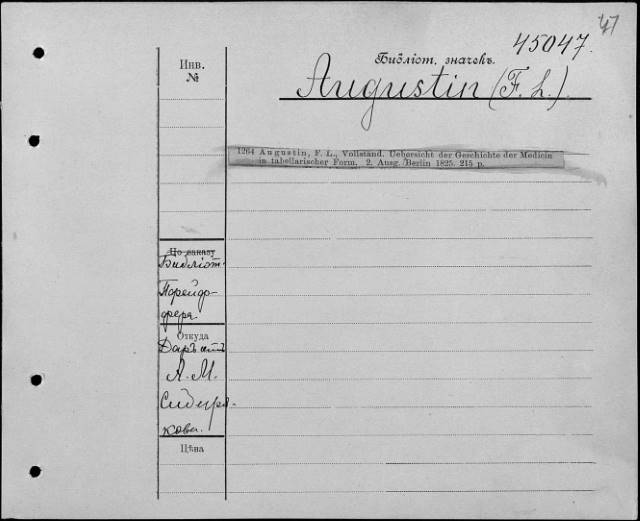 47
45047.
Инв.
№
Библіот. значекъ.
Augustin (F. L.)
1264 Augustin, F. L., Vollständ. Uebersicht der Geschichte der Medicin
in tabellarischer Form. 2. Ausg. Berlin 1825. 215 p.
По заказу
Библіот.
фера
Откуда
Даръ отъ
А. М.
Сидоря-
кова.
Цѣна